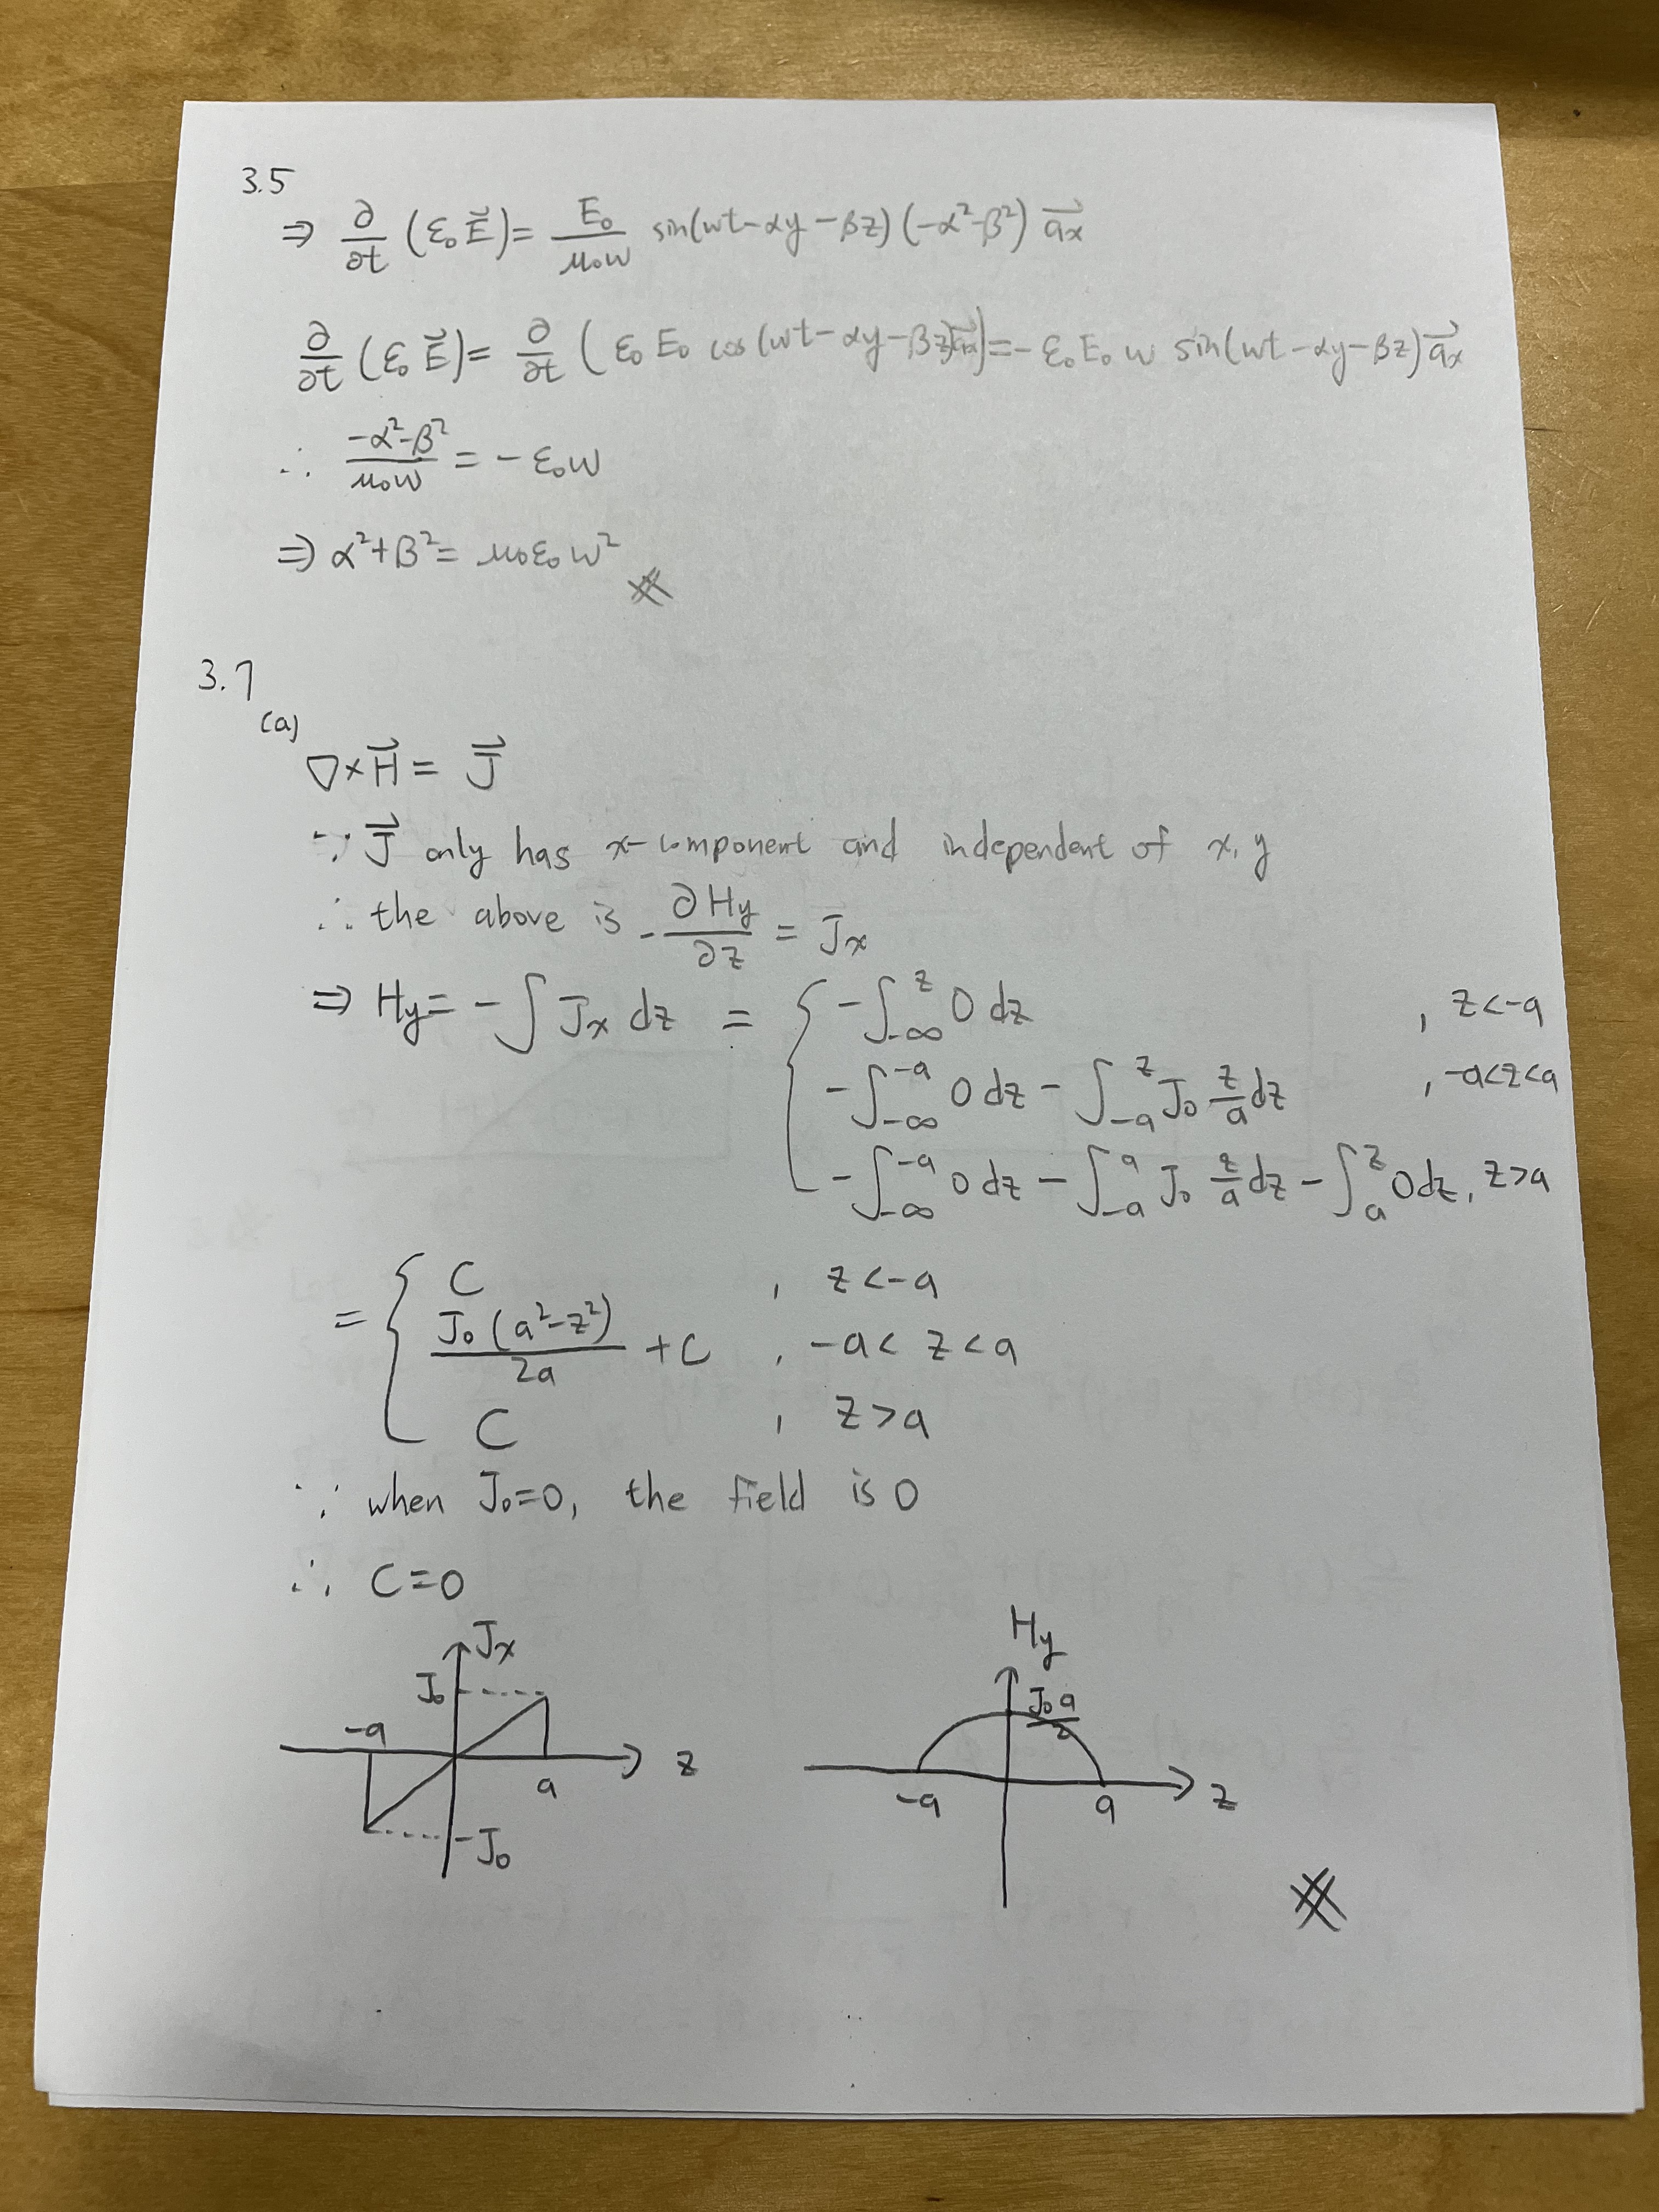 3.5
⇒ ∂/∂t (ε₀E⃗) = E₀/μ₀w sin(wt-αy-βz)(-α²-β²) a⃗x
∂/∂t (ε₀E⃗) = ∂/∂t (ε₀E₀ cos(wt-αy-βz)) = -ε₀E₀w sin(wt-αy-βz) a⃗x
∴ (-α²-β²)/μ₀w = -ε₀w
⇒ α²+β² = μ₀ε₀w²
3.7
(a) ∇×H⃗ = J⃗
∵ J⃗ only has x-component and independent of x,y
∴ the above is -∂Hy/∂z = Jx
⇒ Hy = -∫Jx dz = { -∫_{-∞}^{z} 0dz , z<-a
-∫_{-∞}^{-a} 0dz - ∫_{-a}^{z} J₀ z/a dz , -a<z<a
-∫_{-∞}^{-a} 0dz - ∫_{-a}^{a} J₀ z/a dz - ∫_{a}^{z} 0dz, z>a
= { C , z<-a
J₀(a²-z²)/2a + C , -a<z<a
C , z>a
∵ when J₀=0, the field is 0
∴ C=0
Jx
J₀
-a
a
z
-J₀
Hy
J₀a/2
-a
a
z